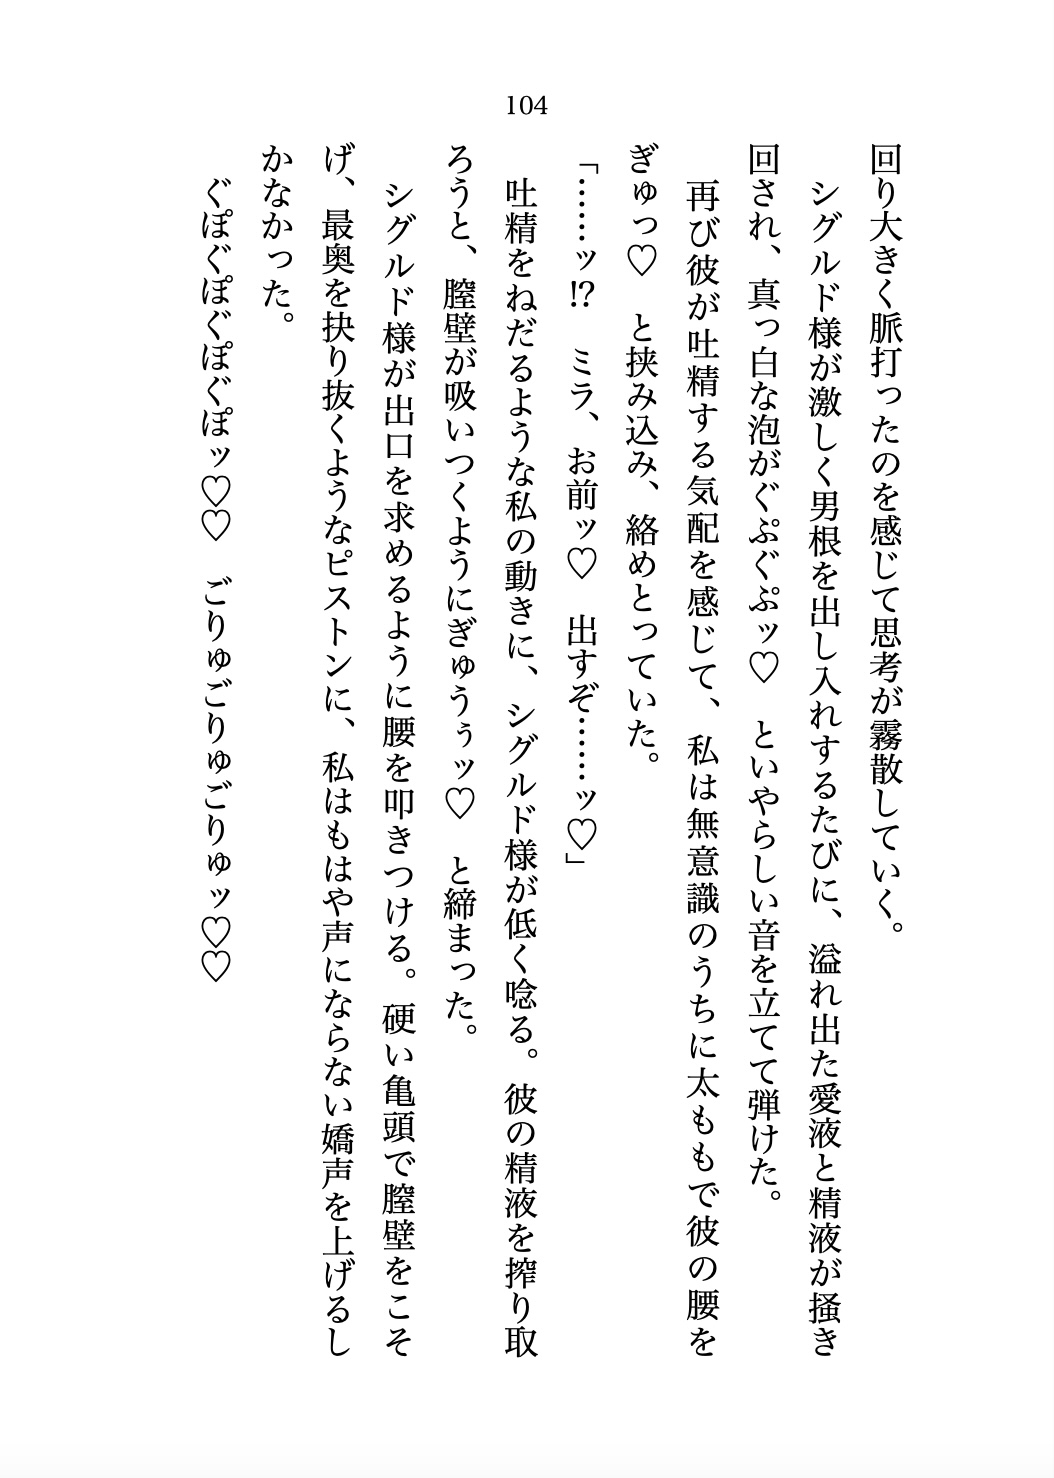 104
回り大きく脈打ったのを感じて思考が霧散していく。
　シグルド様が激しく男根を出し入れするたびに、溢れ出た愛液と精液が掻き
回され、真っ白な泡がぐぷぐぷッ♡　といやらしい音を立てて弾けた。
　再び彼が吐精する気配を感じて、私は無意識のうちに太ももで彼の腰を
ぎゅっ♡　と挟み込み、絡めとっていた。
「……ッ!?　ミラ、お前ッ♡　出すぞ……ッ♡」
　吐精をねだるような私の動きに、シグルド様が低く唸る。彼の精液を搾り取
ろうと、膣壁が吸いつくようにぎゅうぅッ♡　と締まった。
　シグルド様が出口を求めるように腰を叩きつける。硬い亀頭で膣壁をこそ
げ、最奥を抉り抜くようなピストンに、私はもはや声にならない嬌声を上げるし
かなかった。
　ぐぽぐぽぐぽぐぽッ♡♡　ごりゅごりゅごりゅッ♡♡